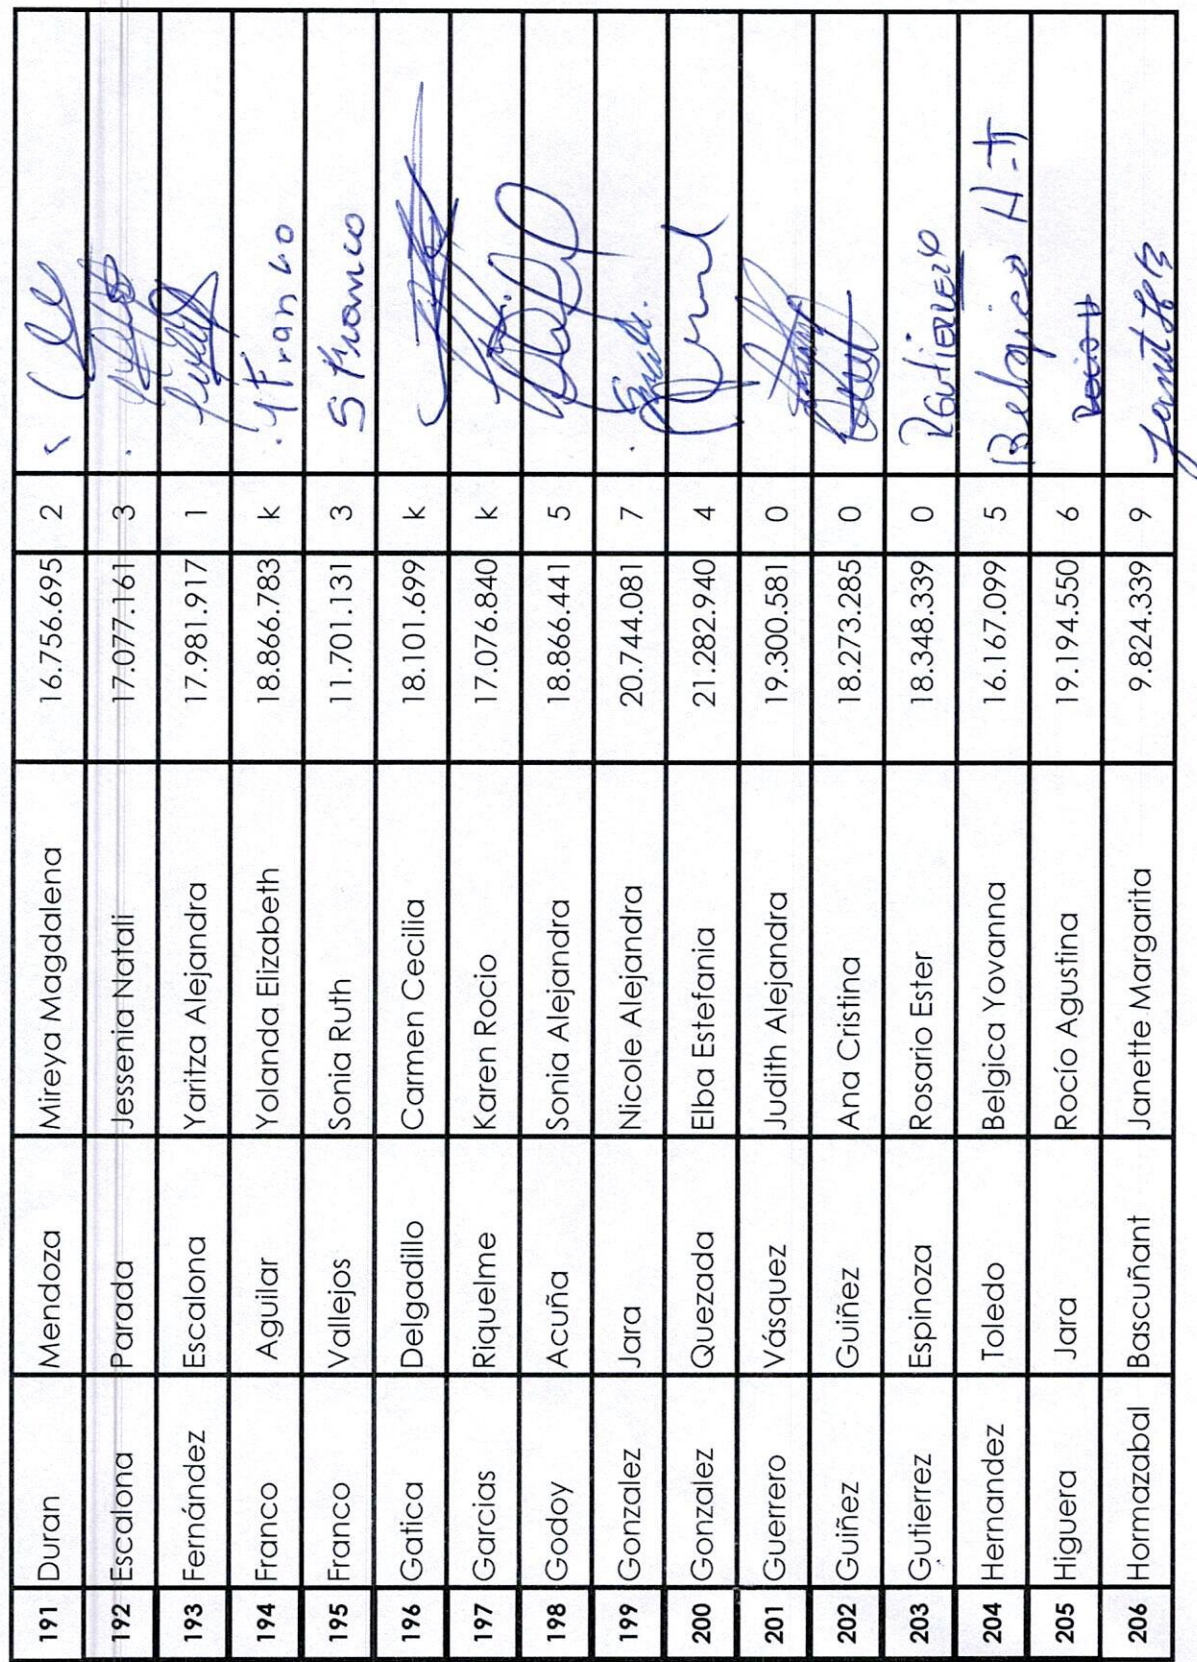 191 Duran Mendoza Mireya Magdalena 16.756.695 2
192 Escalona Parada Jessenia Natali 17.077.161 3
193 Fernández Escalona Yaritza Alejandra 17.981.917 1
194 Franco Aguilar Yolanda Elizabeth 18.866.783 k Y Franco
195 Franco Vallejos Sonia Ruth 11.701.131 3 S Franco
196 Gatica Delgadillo Carmen Cecilia 18.101.699 k
197 Garcias Riquelme Karen Rocio 17.076.840 k
198 Godoy Acuña Sonia Alejandra 18.866.441 5
199 Gonzalez Jara Nicole Alejandra 20.744.081 7
200 Gonzalez Quezada Elba Estefania 21.282.940 4
201 Guerrero Vásquez Judith Alejandra 19.300.581 0
202 Guiñez Guiñez Ana Cristina 18.273.285 0
203 Gutierrez Espinoza Rosario Ester 18.348.339 0 RGutierrez
204 Hernandez Toledo Belgica Yovanna 16.167.099 5 Belgica H-T
205 Higuera Jara Rocío Agustina 19.194.550 6 Rocio H
206 Hormazabal Bascuñant Janette Margarita 9.824.339 9